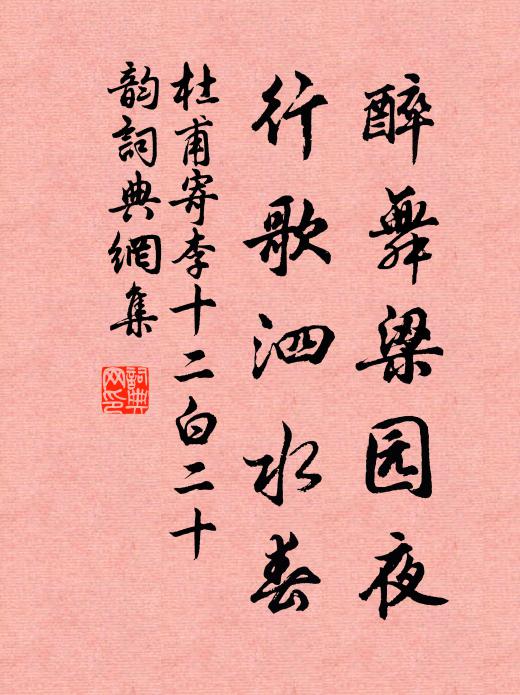 醉舞梁园夜
行歌泗水春
杜甫寄李十二白二十
韵詞典網集
詞典
网印